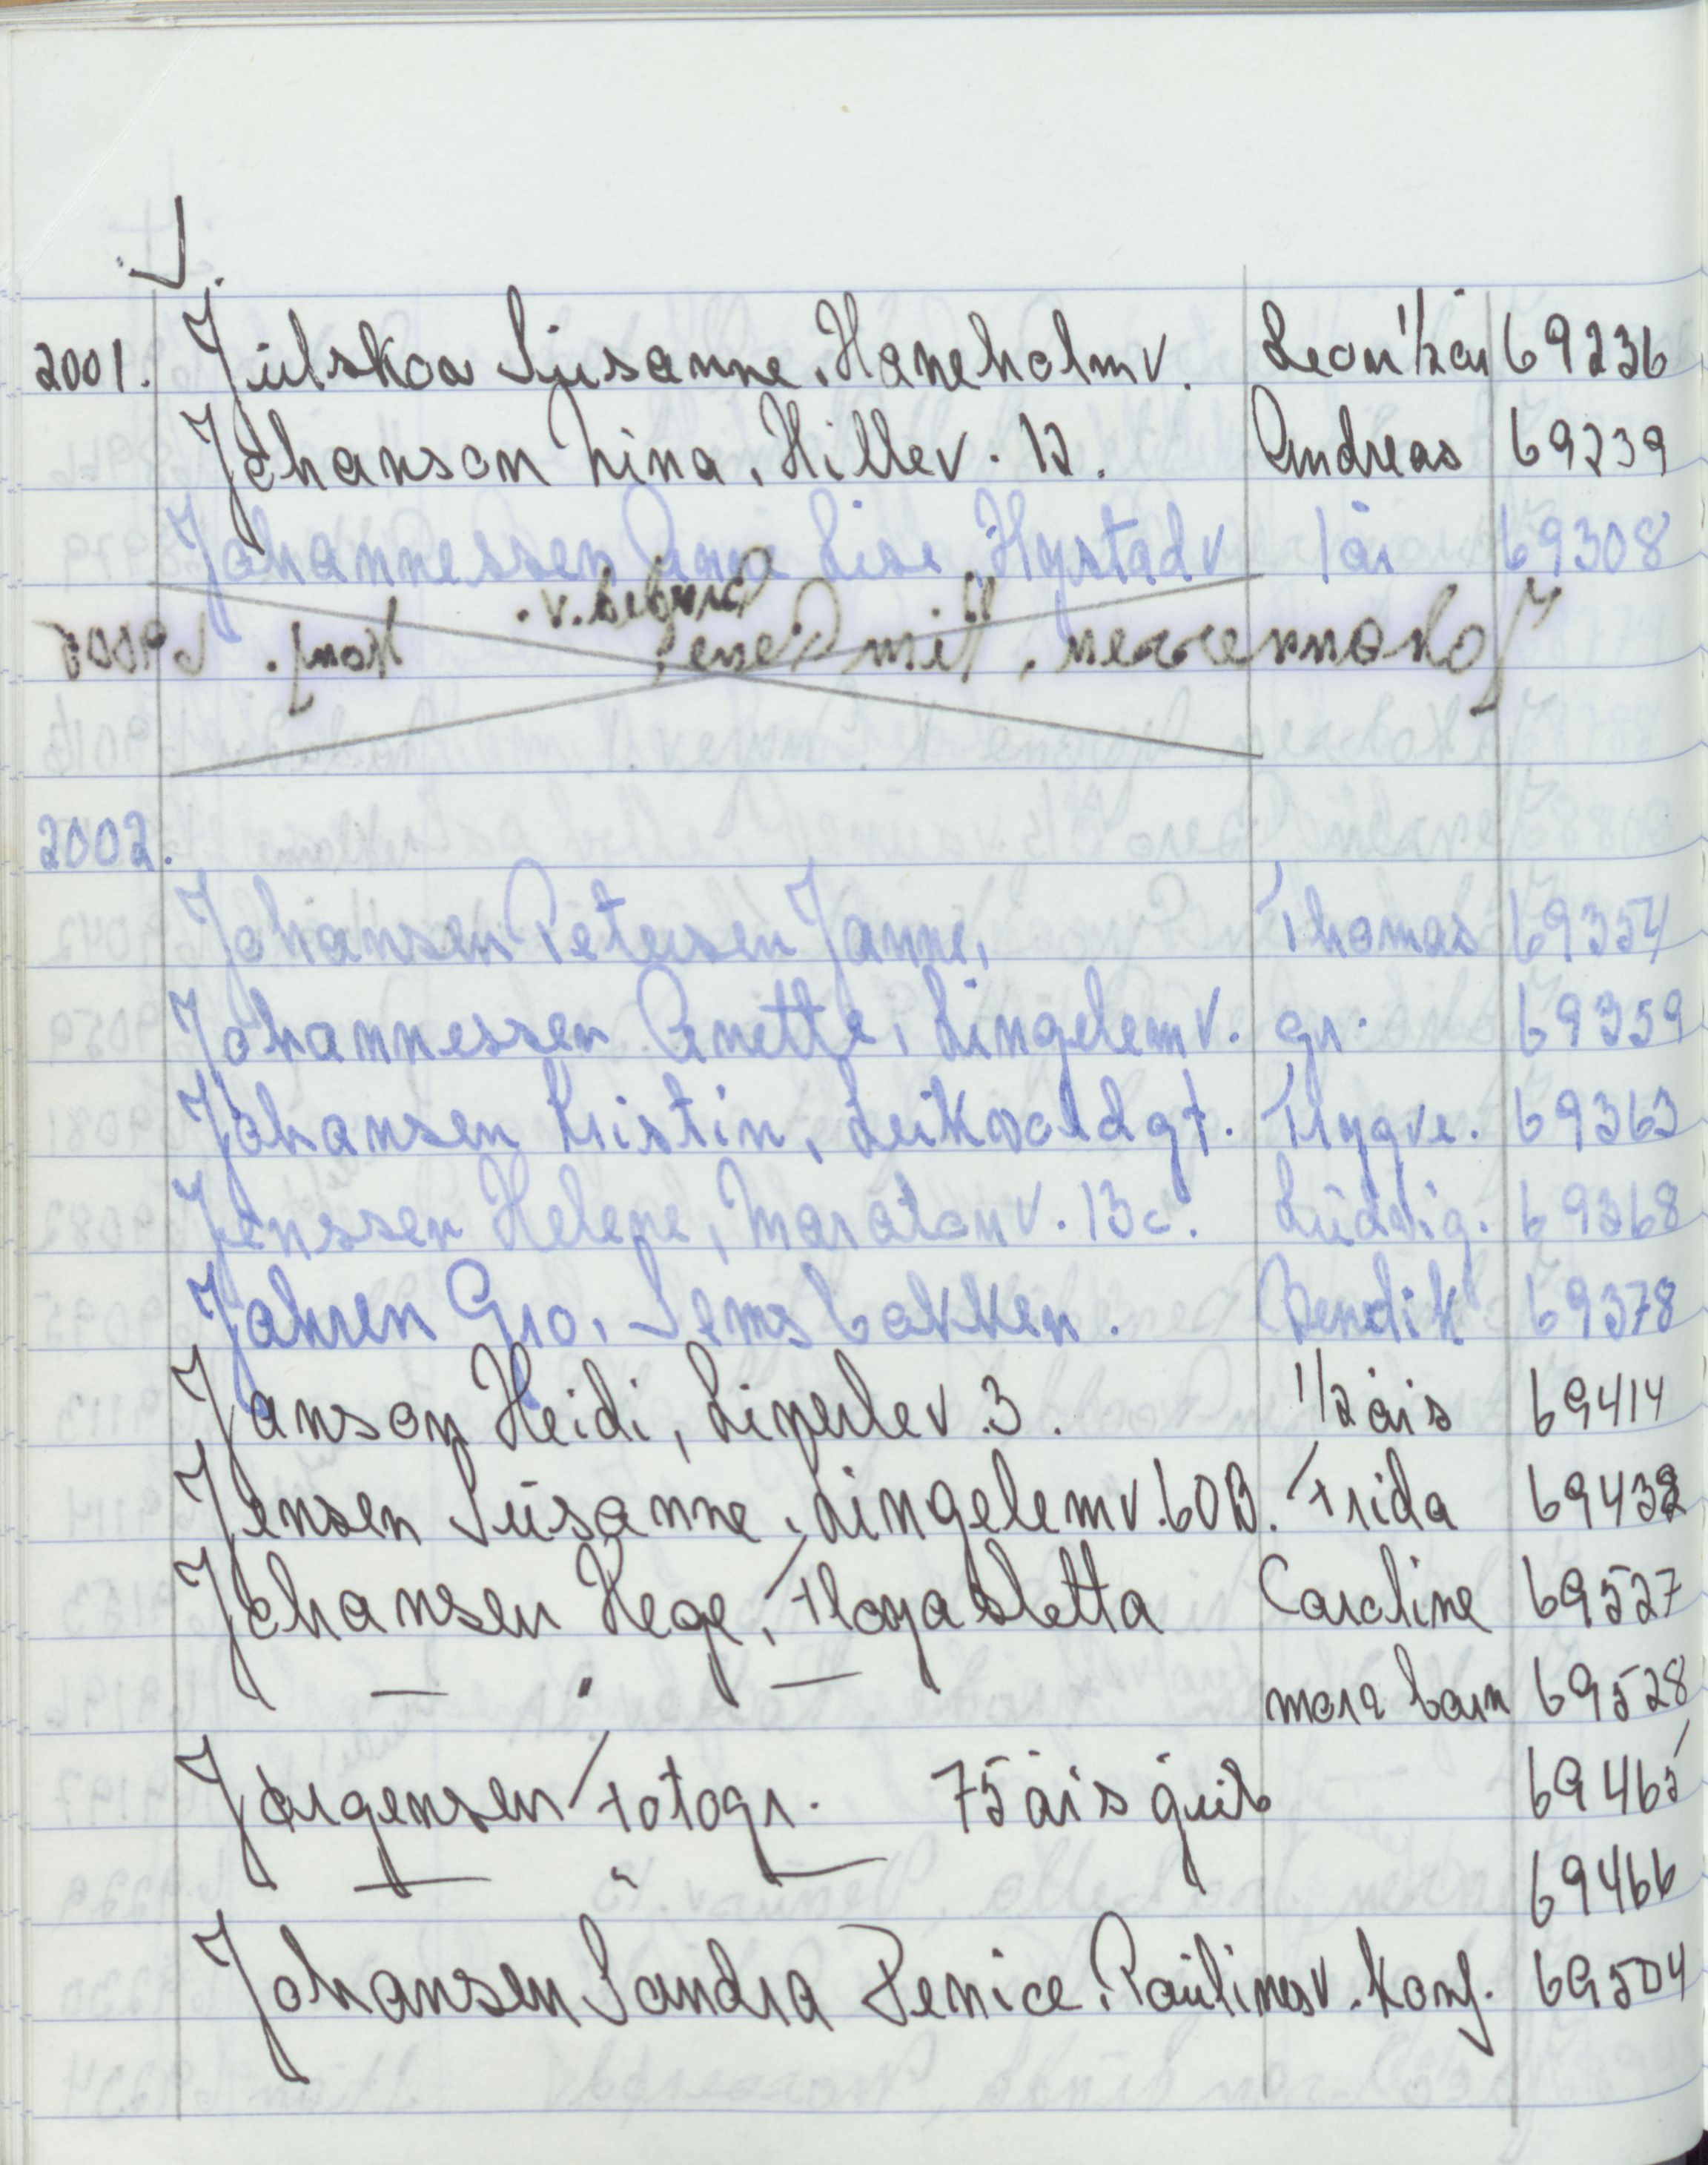 J.
2001. Julskov Susanne. Haneholmv. Leon 1/2 år 69236
Johanson Lina, Hillev. 12. Andreas 69239
Johannessen Anne Lise, Hystadv 1 år 69308
2002.
Johansen Petersen Janne, Thomas 69354
Johannessen Anette, Lingelemv. gr. 69359
Johansen Kristin, Leikvoldgt. Trygve. 69363
Jenssen Helene, Maratonv. 13c. Ludvig. 69368
Jahren Gro, Semsbakken. Bendik 69378
Janson Heidi, Linerlev. 3. 1/2 års 69414
Jensen Susanne, Lingelemv. 60B. Frida 69438
Johansen Hege, Fløyasletta Caroline 69527
— " — mora barn 69528
Jørgensen Fotogr. 75 års jub 69465
— " — 69466
Johansen Sandra Penice. Paulinesv. Konf. 69504